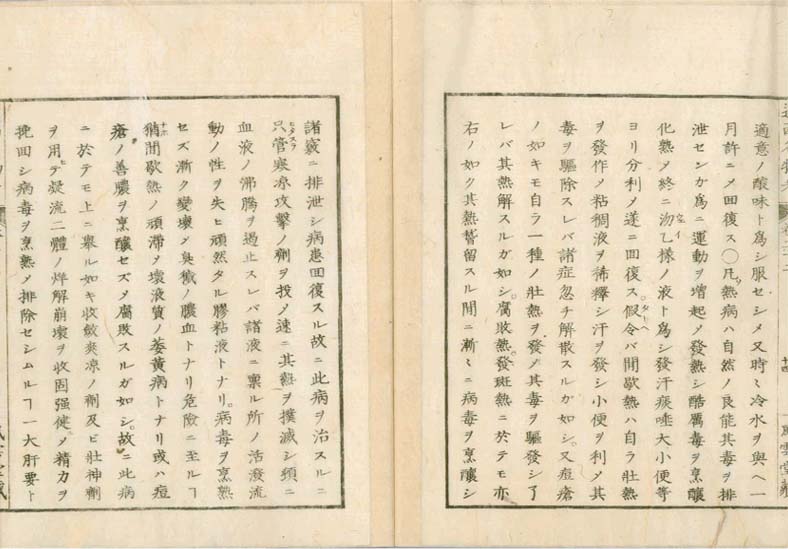 適意ノ酸味ト爲シ服セシメ又時〻冷水ヲ與ヘ一
月許ニメ回復ス〇凡熱病ハ自然ノ良能其毒ヲ排
泄センガ爲ニ運動ヲ增起メ發熱シ酷厲毒ヲ烹釀
化熟メ終ニ泑乙樣ノ液ト爲シ發汗痰唾大小便等
ヨリ分利メ遂ニ回復ス假令バ間歇熱ハ自ラ壯熱
ヲ發作メ粘稠液ヲ稀釋シ汗ヲ發シ小便ヲ利メ其
毒ヲ驅除スレバ諸症忽チ解散スルガ如シ又痘瘡
ノ如キモ自ラ一種ノ壯熱ヲ發メ其毒ヲ驅發シ了
レバ其熱解スルガ如シ腐敗熱發斑熱ニ於テモ亦
右ノ如ク其熱暫留スル間ニ漸〻ニ病毒ヲ烹釀シ
諸竅ニ排泄シ病患回復スル故ニ此病ヲ治スルニ
只管寒凉攻擊ノ劑ヲ投メ速ニ其熱ヲ撲滅シ頻ニ
血液ノ沸騰ヲ遏止スレバ諸液ニ稟ル所ノ活潑流
動ノ性ヲ失ヒ頑然タル膠粘液トナリ病毒ヲ烹熟
セズ漸ク變壞メ臭穢ノ膿血トナリ危險ニ至ルヿ
猶間歇熱ノ頑滯メ壞液質ノ萎黃病トナリ或ハ痘
瘡ノ善膿ヲ烹釀セズメ腐敗スルガ如シ故ニ此病
ニ於テモ上ニ擧ル如キ收斂爽凉ノ劑及ビ壯神劑
ヲ用テ凝流二體ノ烊解崩壞ヲ收固强健メ精力ヲ
挽回シ病毒ヲ烹熟メ排除セシムルヿ一大肝要ト